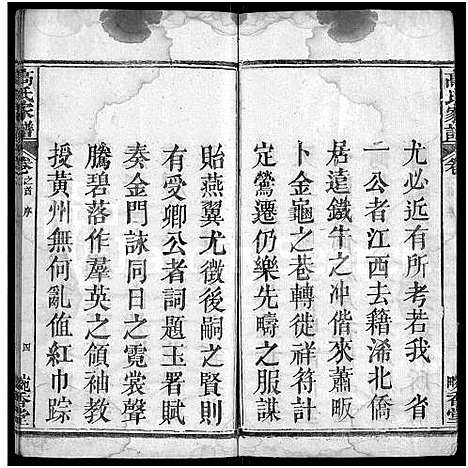 高氏家譜
卷
尤必近有所考若我 省
一公者江西去籍浠北僑
居遠鐵牛之冲偕來蕭畈
卜金龜之巷轉徙祥符計
定鶯遷仍樂先疇之服謀
貽燕翼尤徵後嗣之賢則
有受卿公者詞題玉署賦
奏金門詠同日之霓裳聲
騰碧落作羣英之領袖教
授黄州無何亂值紅巾踪
高氏家譜
卷之首 序
四